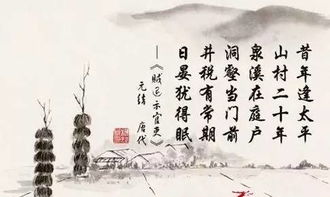 昔年逢太平
山村二十年
泉溪在庭户
洞壑当门前
井税有常期
日晏犹得眠
——《贼退示官吏》
元结 唐代